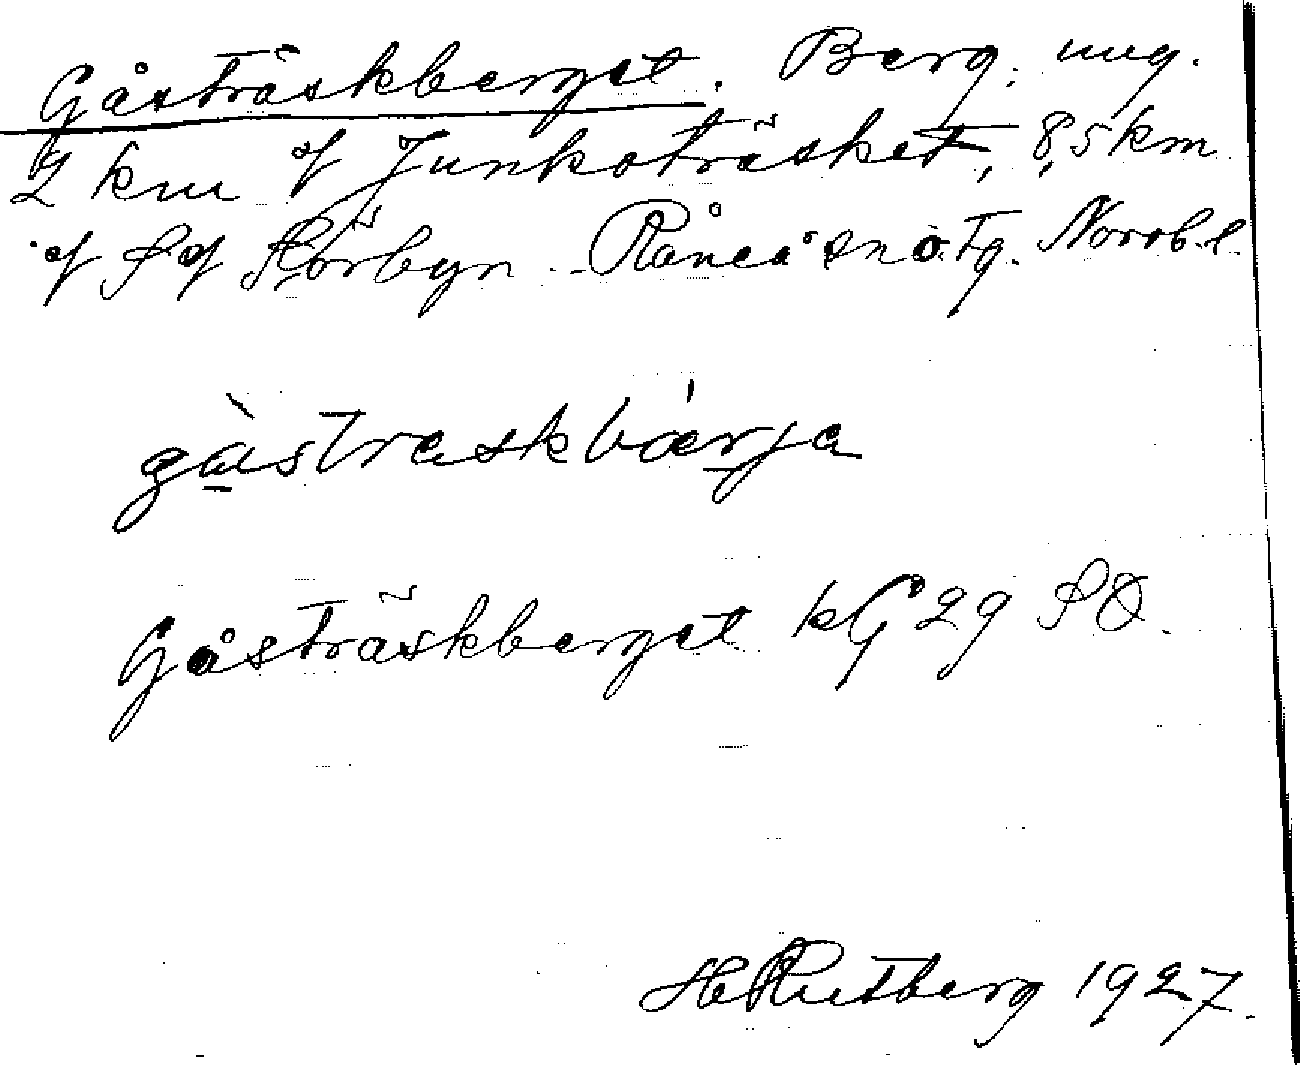 Gåsträskberget. Berg, ung.
2 km af Junkoträsket, 8,5 km
af S af Rörbyn. Råneå sn o. tg. Norrb. l.
gåstraskbärja
Gåsträskberget kG 29 SO.
H Rutberg 1927.